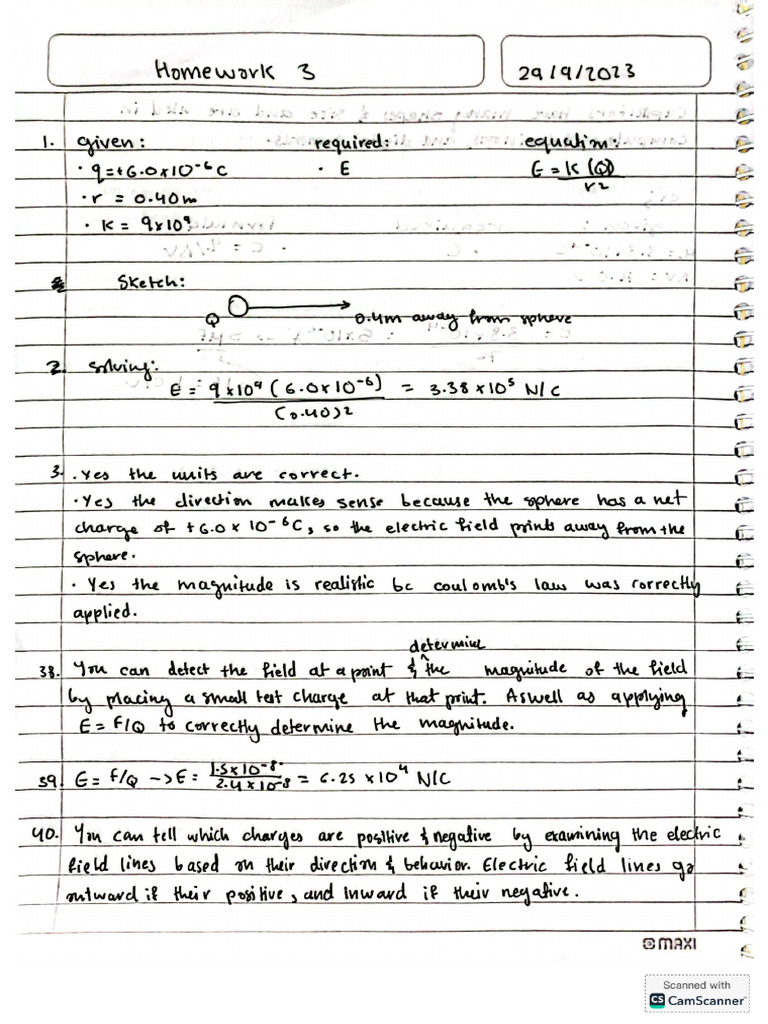 Homework 3
29/9/2023
1. given: required: equation:
· q=+6.0x10-6C · E E = K (Q)
r2
· r = 0.40m
· K = 9x10⁹
Sketch:
Q 0.4m away from sphere
2. solving:
E = 9x10⁹ (6.0x10-6) = 3.38x10⁵ N/C
(0.40)2
3. · Yes the units are correct.
· Yes the direction makes sense because the sphere has a net
charge of +6.0 x 10-6C, so the electric field points away from the
sphere.
· Yes the magnitude is realistic bc coulomb's law was correctly
applied.
determine
38. You can detect the field at a point & the magnitude of the field
by placing a small test charge at that point. Aswell as applying
E = F/Q to correctly determine the magnitude.
39. E = F/Q -> E = 1.5x10-8 = 6.25 x10⁴ N/C
2.4x10-8
40. You can tell which charges are positive & negative by examining the electric
field lines based on their direction & behavior. Electric field lines go
outward if their positive, and inward if their negative.
MAXI
Scanned with
CS CamScanner